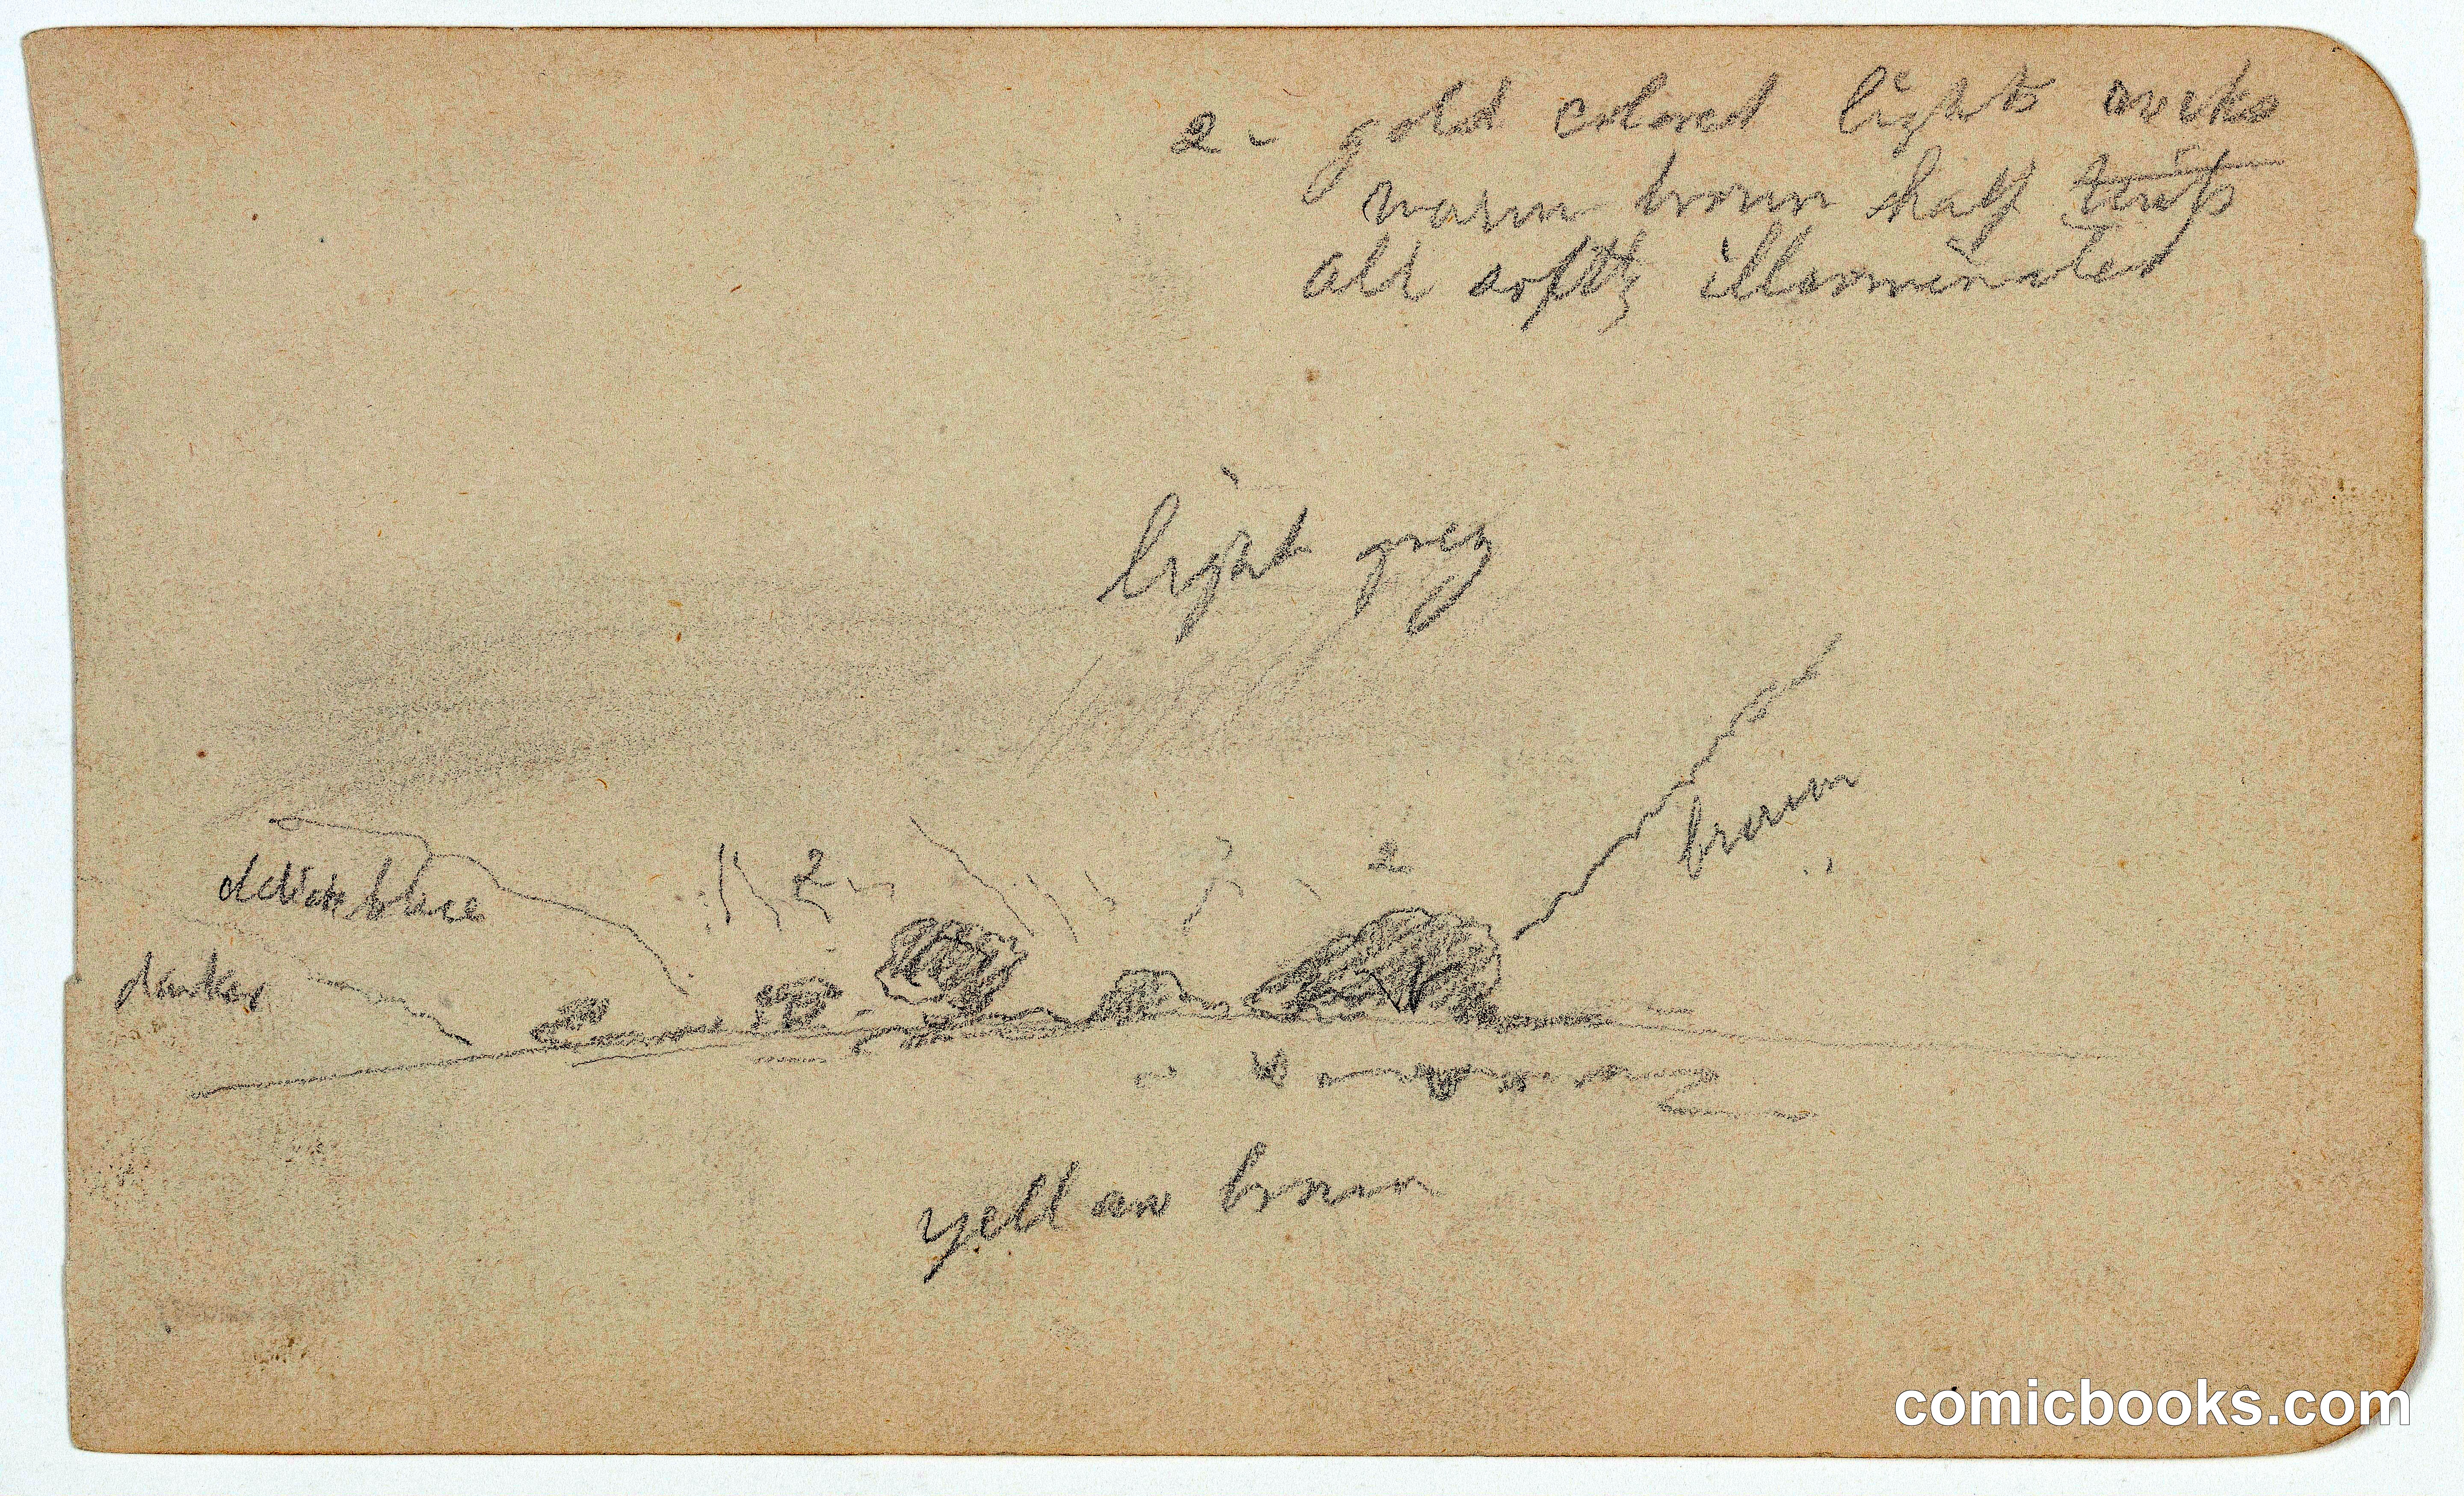 2 - gold colored lights
warm brown half tints
all softly illuminated
light grey
brown
2
2
blue
darker
yellow brown
comicbooks.com